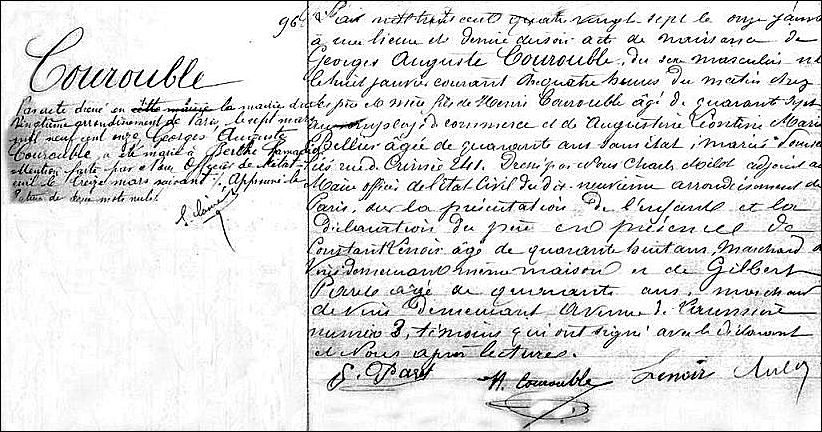 96
Courouble
Par acte dressé en cette mairie la mairie du
vingtième arrondissement de Paris, le sept mars
mil neuf cent onze Georges Auguste
Courouble, a été marié à Berthe
Mention faite par Nous Officier de l'état
civil le treize mars suivant. Approuvé la
rature de deux mots nuls.
L'an mil huit cent quatre vingt-sept le onze janvier
à une heure et demie du soir acte de naissance de
Georges Auguste Courouble, du sexe masculin né
le huit janvier courant à quatre heures du matin chez
ses père et mère fils de Henri Courouble âgé de quarante sept
ans employé de commerce et de Augustine Léontine Marie
Bellier âgée de quarante ans sans état, mariés domici
liés rue de Crimée 241. Dressé par Nous Charles adjoint au
Maire officier de l'Etat Civil du dix-neuvième arrondissement de
Paris, sur la présentation de l'enfant et la
déclaration du père en présence de
Constant Lenoir âgé de quarante huit ans, Marchand de
Vins demeurant même maison et de Gilbert
âgé de quarante ans, marchand
de vins demeurant Avenue de
numéro 3, témoins qui ont signé avec le déclarant
et Nous après lecture.
H. Courouble Lenoir